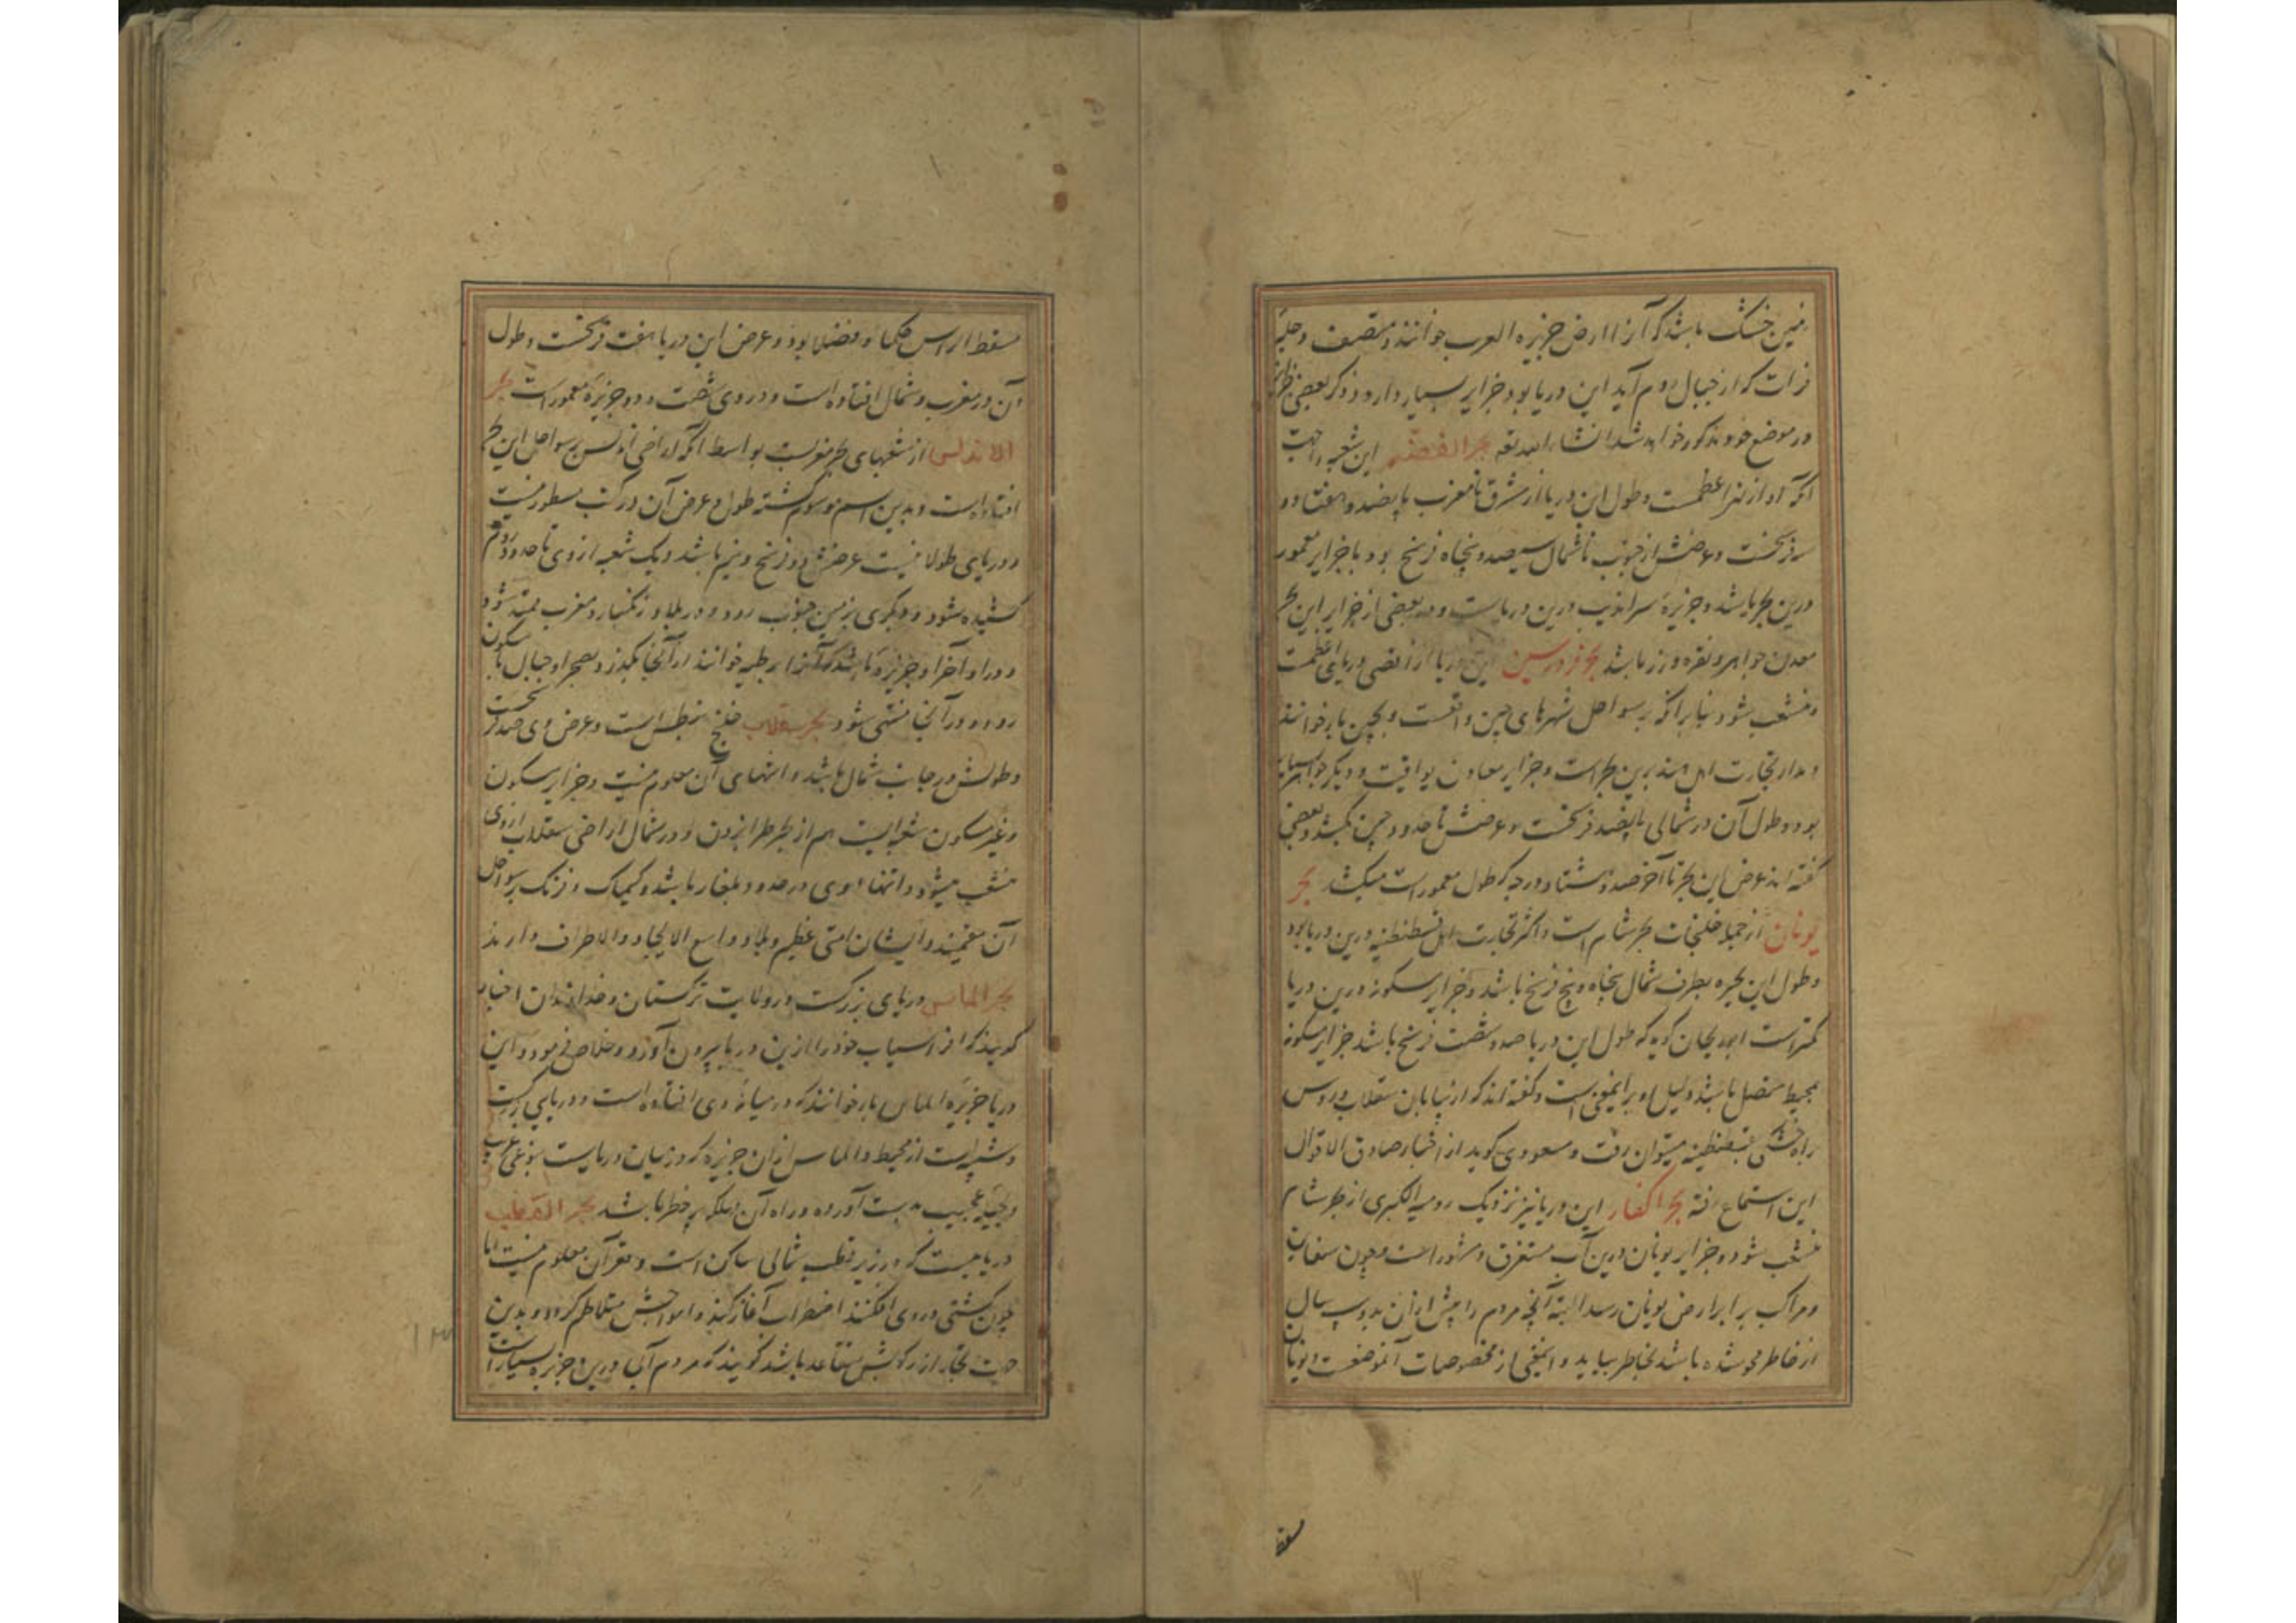 زمین خشک باشد که آنرا ارض جزیره العرب خوانند و منتصف دجله
فرات که از جبال روم آید این دریا بود و جزایر بسیار دارد و ذکر بعضی
در موضع خود مذکور خواهد شد انشاء الله تعه بحر این شعبه را جهت
آنکه او از اعظمست و طول این دریا از مشرق تا مغرب پانصد و هفتاد و
سه فرسخست و عرضش از جنوب تا شمال سیصد و پنجاه فرسخ بود با جزایر معمور
درین بحر باشد و جزیرهٔ سراندیب درین دریاست و در بعضی از جزایر این بحر
معدن جواهر و نقره و زر باشد بحر این دریا از اقصی دریای اعظمست
منشعب شود بنابر آنکه بر سواحل شهرهای چین واقعست و بچین باز خوانند
و مدار تجارت اهل هند برین بحر است و جزایر معادن یواقیت و دیگر جواهر
بود و طول آن در شمالی پانصد فرسخست و عرضش تا حدود چین بکشد و بعضی
گفته اند عرض این بحر تا آخر صد و هشتاد درجه که طول معمور است میکشد بحر
یونان از جمله خلیجات بحر شام است و اکثر تجارت اهل قسطنطنیه درین دریا بود
و طول این بحیره بطرف شمال پنجاه و پنج فرسخ باشد و جزایر مسکونه درین دریا
کمتر است ابو ریحان گوید که طول این دریا صد و شصت فرسخ باشد جزایر مسکونه
بمحیط متصل باشد دلیل او بر اینمعنی است و گفته اند که از بیابان سقلاب و روس
براه خشکی بقسطنطنیه میتوان رفت و مسعودی گوید از اخبار صادق الاقوال
این استماع رفته بحر این دریا نیز نزدیک رومیه الکبری از بحر شام
منشعب شود و جزایر یونان درین آب مستغرق و مشهور است و چون سفاین
و مراکب برابر ارض یونان رسد البته آنچه مردم را پیش از آن بدویست سال
از خاطر محو شده باشد بخاطر بیاید و اینمعنی از مخصوصات آنموضعست و یونان
مسقط
مسقط الراس حکما و فضلا بود و عرض این دریا هفت فرسخست و طول
آن در مغرب و شمال افتاده است و در وی شصت و دو جزیرهٔ معمور است بحر
الاندلس از شعبهای بحر مغربست بواسطه آنکه اراضی اندلس بر سواحل این بحر
افتاده است و بدین اسم موسوم گشته طول و عرض آن در کتب مسطور نیست
و دریای طولانیست عرضش دو فرسخ و نیم باشد و یک شعبه از وی تا حدود روم
کشیده شود و دیگری بزمین جنوب رود و در بلاد زنگبار و مغرب ممتد شود
و در او آخر او جزیرهٔ باشد که آنرا خوانند از آنجا بگذرد و بصحرا و جبال نامسکون
رود و در آنجا منتهی شود بحر سقلاب خلیج نیطس است و عرض وی صد فرسخست
و طولش در جانب شمال باشد و انتهای آن معلوم نیست و جزایر مسکون
و غیر مسکون شعبه ایست هم از بحر طرابزون و در شمال اراضی سقلاب از وی
منشعب میشود و انتهاء وی در حدود بلغار باشد و کیماک و فرنک بر سواحل
آن مقیمند و ایشان امتی عظیم و بلاد واسع الارجاء و الاطراف دارند
بحر الماس دریای بزرگست در ولایت ترکستان و خداوندان اخبار
گویند که افراسیاب خود را ازین دریا بیرون آورد و خلاص فرمود و این
دریا جزیرهٔ الماس باز خوانند که در میانه وی افتاده است و دریایی بزرگست
و شعبه ایست از محیط و الماس ازان جزیره که در میان دریاست بنوعی غریب
و حیله عجیب بدست آورده و راه آن مملکه پر خطر باشد بحر القطب
دریاییست که در زیر قطب شمالی ساکن است و قعر آن معلوم نیست اما
چون کشتی در وی افکنند اضطراب آغاز کند و امواجش متلاطم گردد و بدین
جهت تجار از رکوبش متقاعد باشد گویند که مردم آبی درین جزیره بسیارند